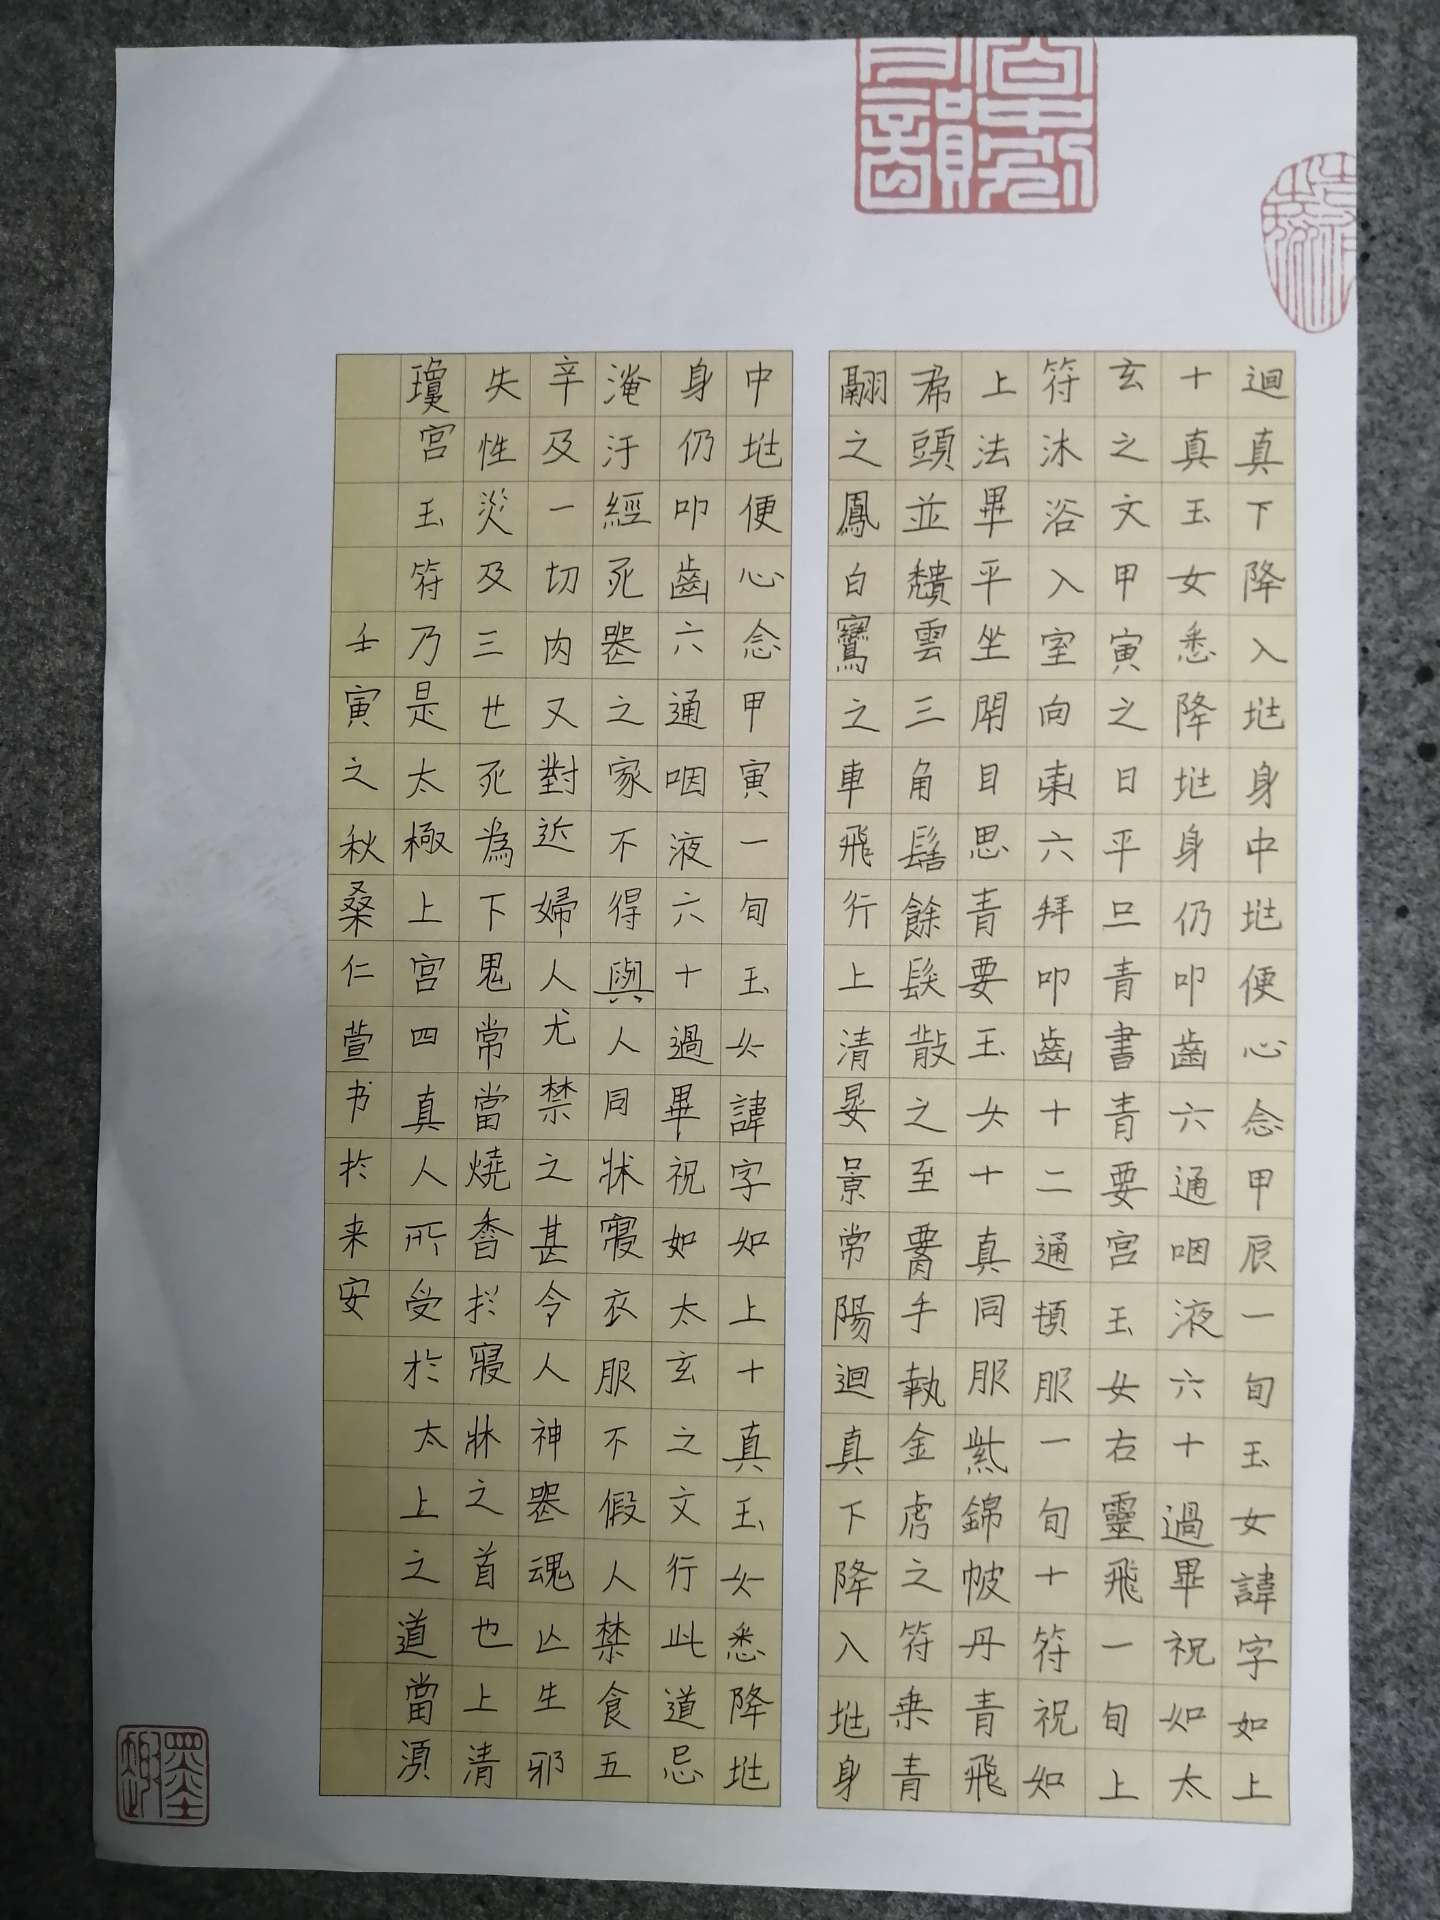 迴真下降入兆身中兆便心念甲辰一旬玉女諱字如上
十真玉女悉降兆身仍叩齒六通咽液六十過畢祝如太
玄之文甲寅之日平旦青書青要宮玉女右靈飛一旬上
符沐浴入室向東六拜叩齒十二通頓服一旬十符祝如
上法畢平坐閉目思青要玉女十真同服紫錦帔丹青飛
帬頭並頹雲三角髻餘髮散之至腰手執金虎之符乘青
翮之鳳白鸞之車飛行上清晏景常陽迴真下降入兆身
中兆便心念甲寅一旬玉女諱字如上十真玉女悉降兆
身仍叩齒六通咽液六十過畢祝如太玄之文行此道忌
淹汙經死喪之家不得與人同牀寢衣服不假人禁食五
辛及一切肉又對近婦人尤禁之甚令人神喪魂亡生邪
失性災及三世死為下鬼常當燒香於寢牀之首也上清
瓊宮玉符乃是太極上宮四真人所受於太上之道當須
壬寅之秋桑仁萱书於来安
墨趣